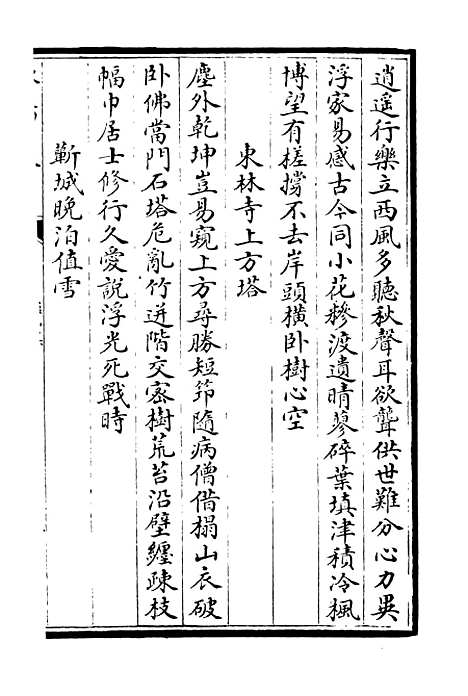 逍遥行樂立西風多聽秋聲耳欲聾供世難分心力異
浮家易感古今同小花糝渡遺晴蓼碎葉填津積冷楓
博望有槎撐不去岸頭横卧樹心空
東林寺上方塔
塵外乾坤豈易窺上方尋勝短筇隨病僧借榻山衣破
卧佛當門石塔危亂竹迸階交宻樹荒苔沿壁纏疎枝
幅巾居士修行久愛説浮光死戰時
蘄城晚泊值雪